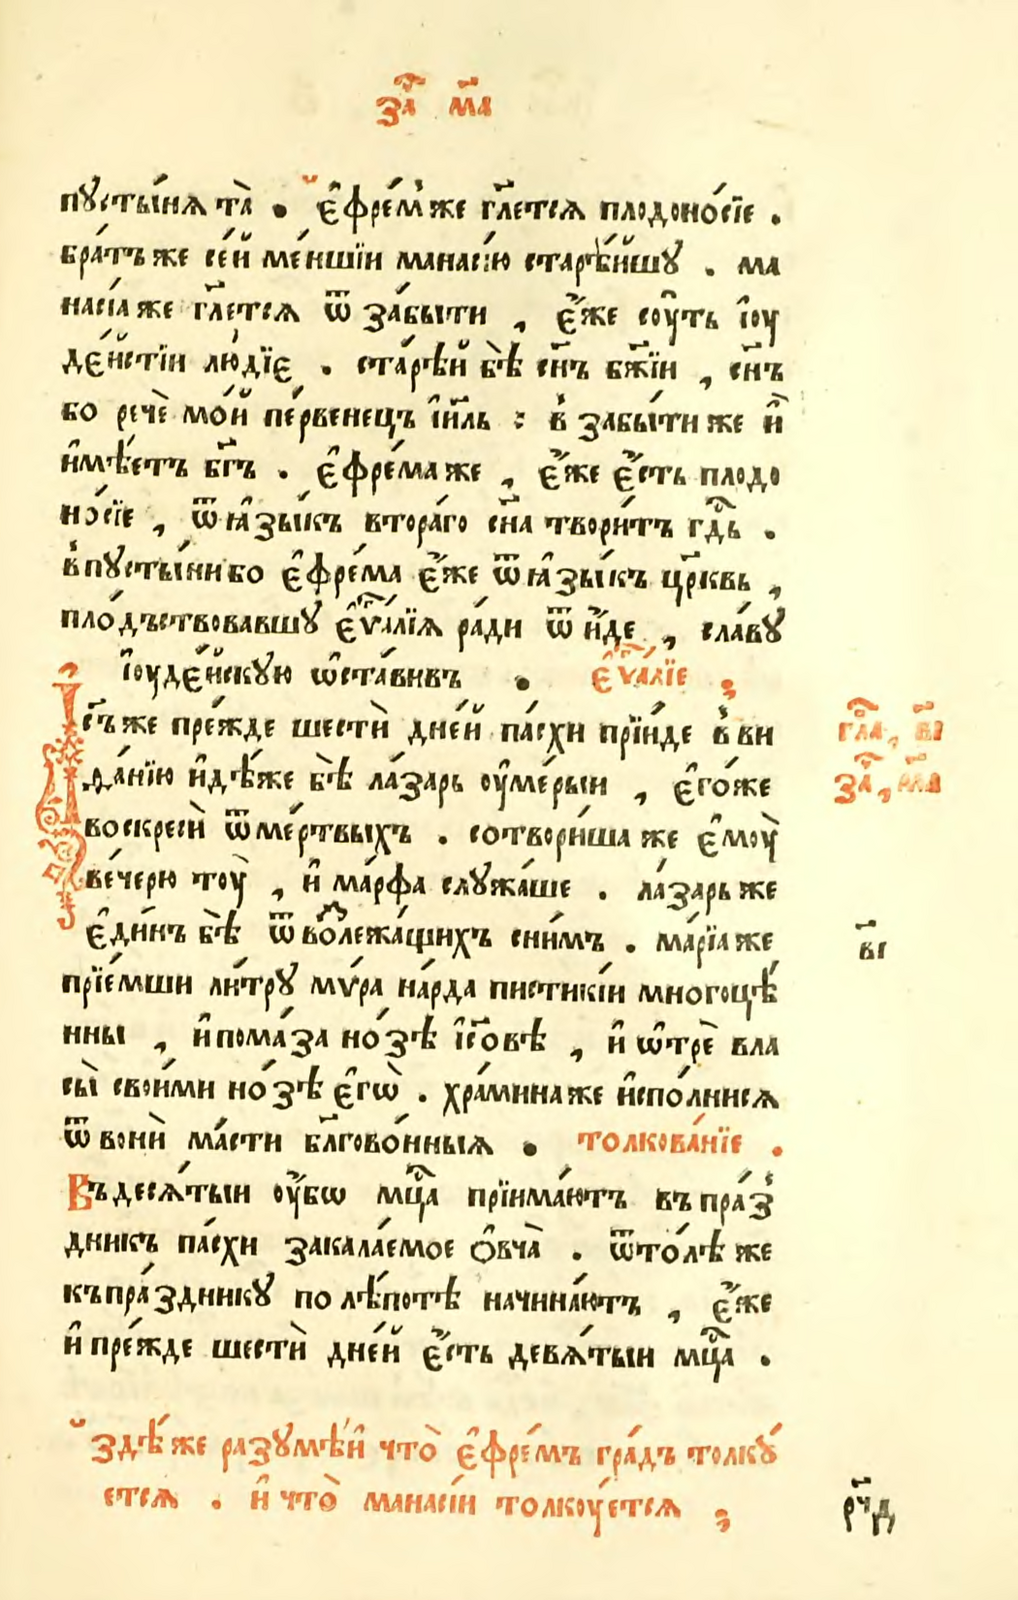 за҇ ма҃
пꙋсты́нѧ та̀ . є҆фре́м же гл҃етсѧ плодоно́сїе .
бра́тъ же се́й ме́ншїи манаси́ю старѣ́йшꙋ . ма
наси́ѧ же гл҃етсѧ ѿ забы́ти , є҆́же сꙋ́ть і҆оу
де́йстїи лю́дїе . старѣ́й бѣ̀ сн҃ъ бж҃їи , сн҃ъ
бо речѐ мо́й пе́рвенецъ і҆и҃ль : в забы́ти же и҆̀
и҆мѣ́етъ бг҃ъ . є҆фре́ма же , є҆́же є҆́сть плодо
но́сїе , ѿ ꙗ҆зы́къ втора́го сн҃а твори́тъ гд҇ь .
в пꙋсты́ни бо є҆фре́ма є҆́же ѿ ꙗ҆зы́къ цр҃квь ,
пло́дъствовавшꙋ є҆ѵа҇лїѧ ра́ди ѿи́де , сла́вꙋ
і҆оуде́йскꙋю ѡ҆ста́вивъ . є҆ѵа҇лїе ;
І҆с҃ъ же пре́жде шестѝ дне́й па́схи прїи́де в ви
да́нїю и҆дѣ́же бѣ̀ ла́зарь оу҆ме́рыи , є҆го́же
воскресѝ ѿ ме́ртвыхъ . сотвори́ша же є҆моу̀
ве́черю тоу̀ , и҆ ма́рфа слꙋжа́ше . ла́зарь же
є҆ди́нъ бѣ̀ ѿ во́лежа́щихъ сни́мъ . ма́рїа же
прїе́мши ли́трꙋ мѵ́ра на́рда пистики́и многоцѣ́
нны , и҆ пома́за но́зѣ і҆с҃овѣ , и҆ ѡ҆трѐ вла
сы̀ свои́ми но́зѣ є҆гѡ̀ . хра́мина же и҆спо́лнисѧ
ѿ вонѝ ма́сти бл҃гово́нныѧ . толкова́нїе .
Въ десѧ́тыи оу҆́бѡ мц҇а прїима́ютъ въ пра́з
дникъ па́схи закала́емое ѻ҆вча̀ . ѿто́лѣ же
къ пра́здникꙋ по лѣ́потѣ начина́ютъ , є҆́же
и҆ пре́жде шестѝ дне́й є҆́сть девѧ́тыи мц҇а .
здѣ́ же разꙋмѣ́й что̀ є҆фре́мъ гра́дъ толкꙋ́
етсѧ . и҆ что̀ манаси́и толкоу́етсѧ ;
гл҇а , в҃і
за҇ , м҃а
в҃і
рч҃д